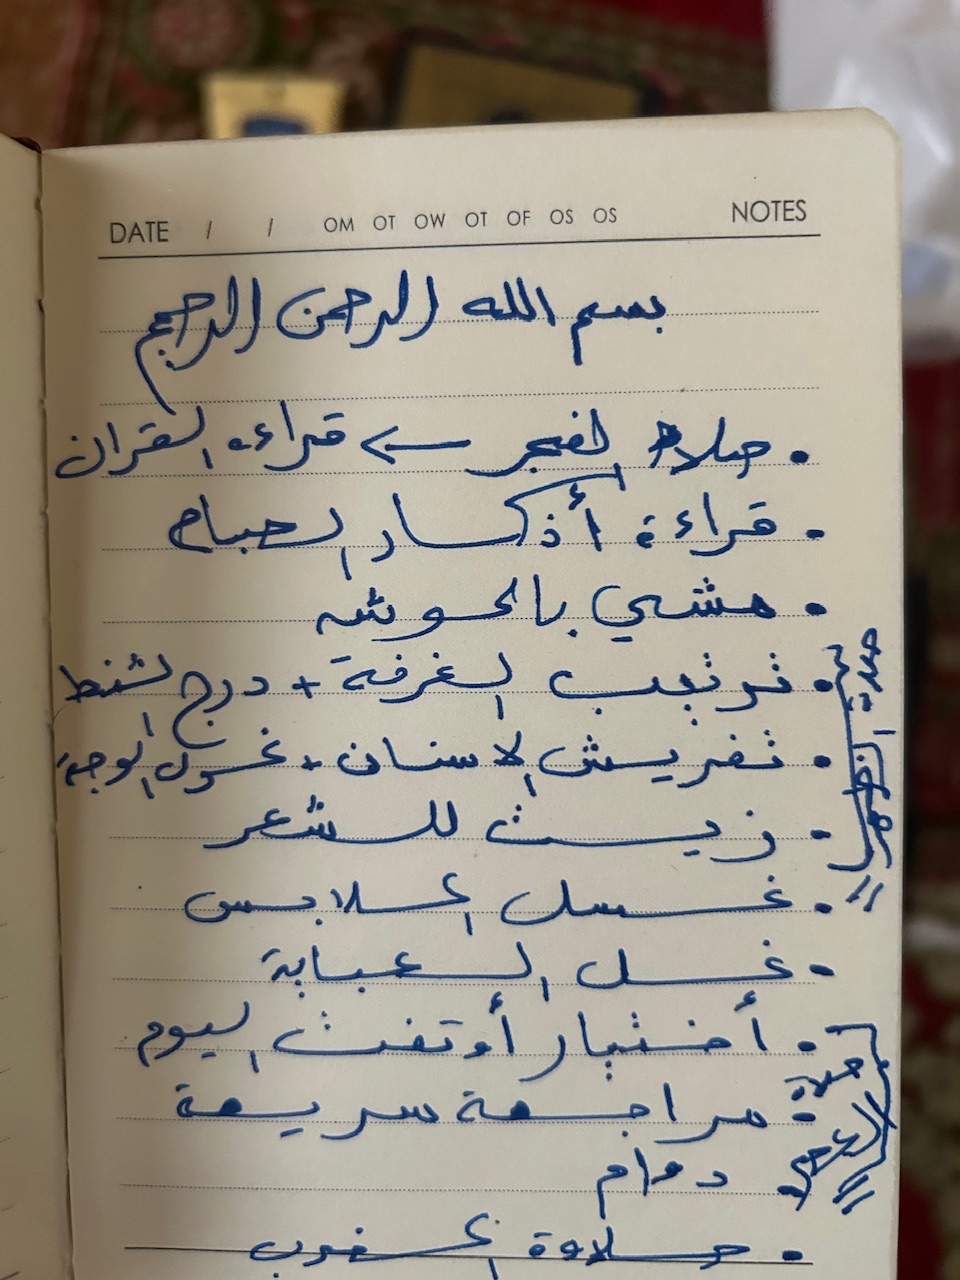 DATE / / OM OT OW OT OF OS OS NOTES
بسم الله الرحمن الرحيم
• صلاة الفجر ← قراءه القران
• قراءة أذكار الصباح
• مشي بالحوش
• ترتيب الغرفة + درج الشنط
• تفريش الاسنان + غسول الوجة
• زيت للشعر
• غسل الملابس
• غسل العباية
صلاة الظهر
• أختيار أوتفت اليوم
• مراجعة سريعة
• دوام
صلاة العصر
• صلاوة المغرب